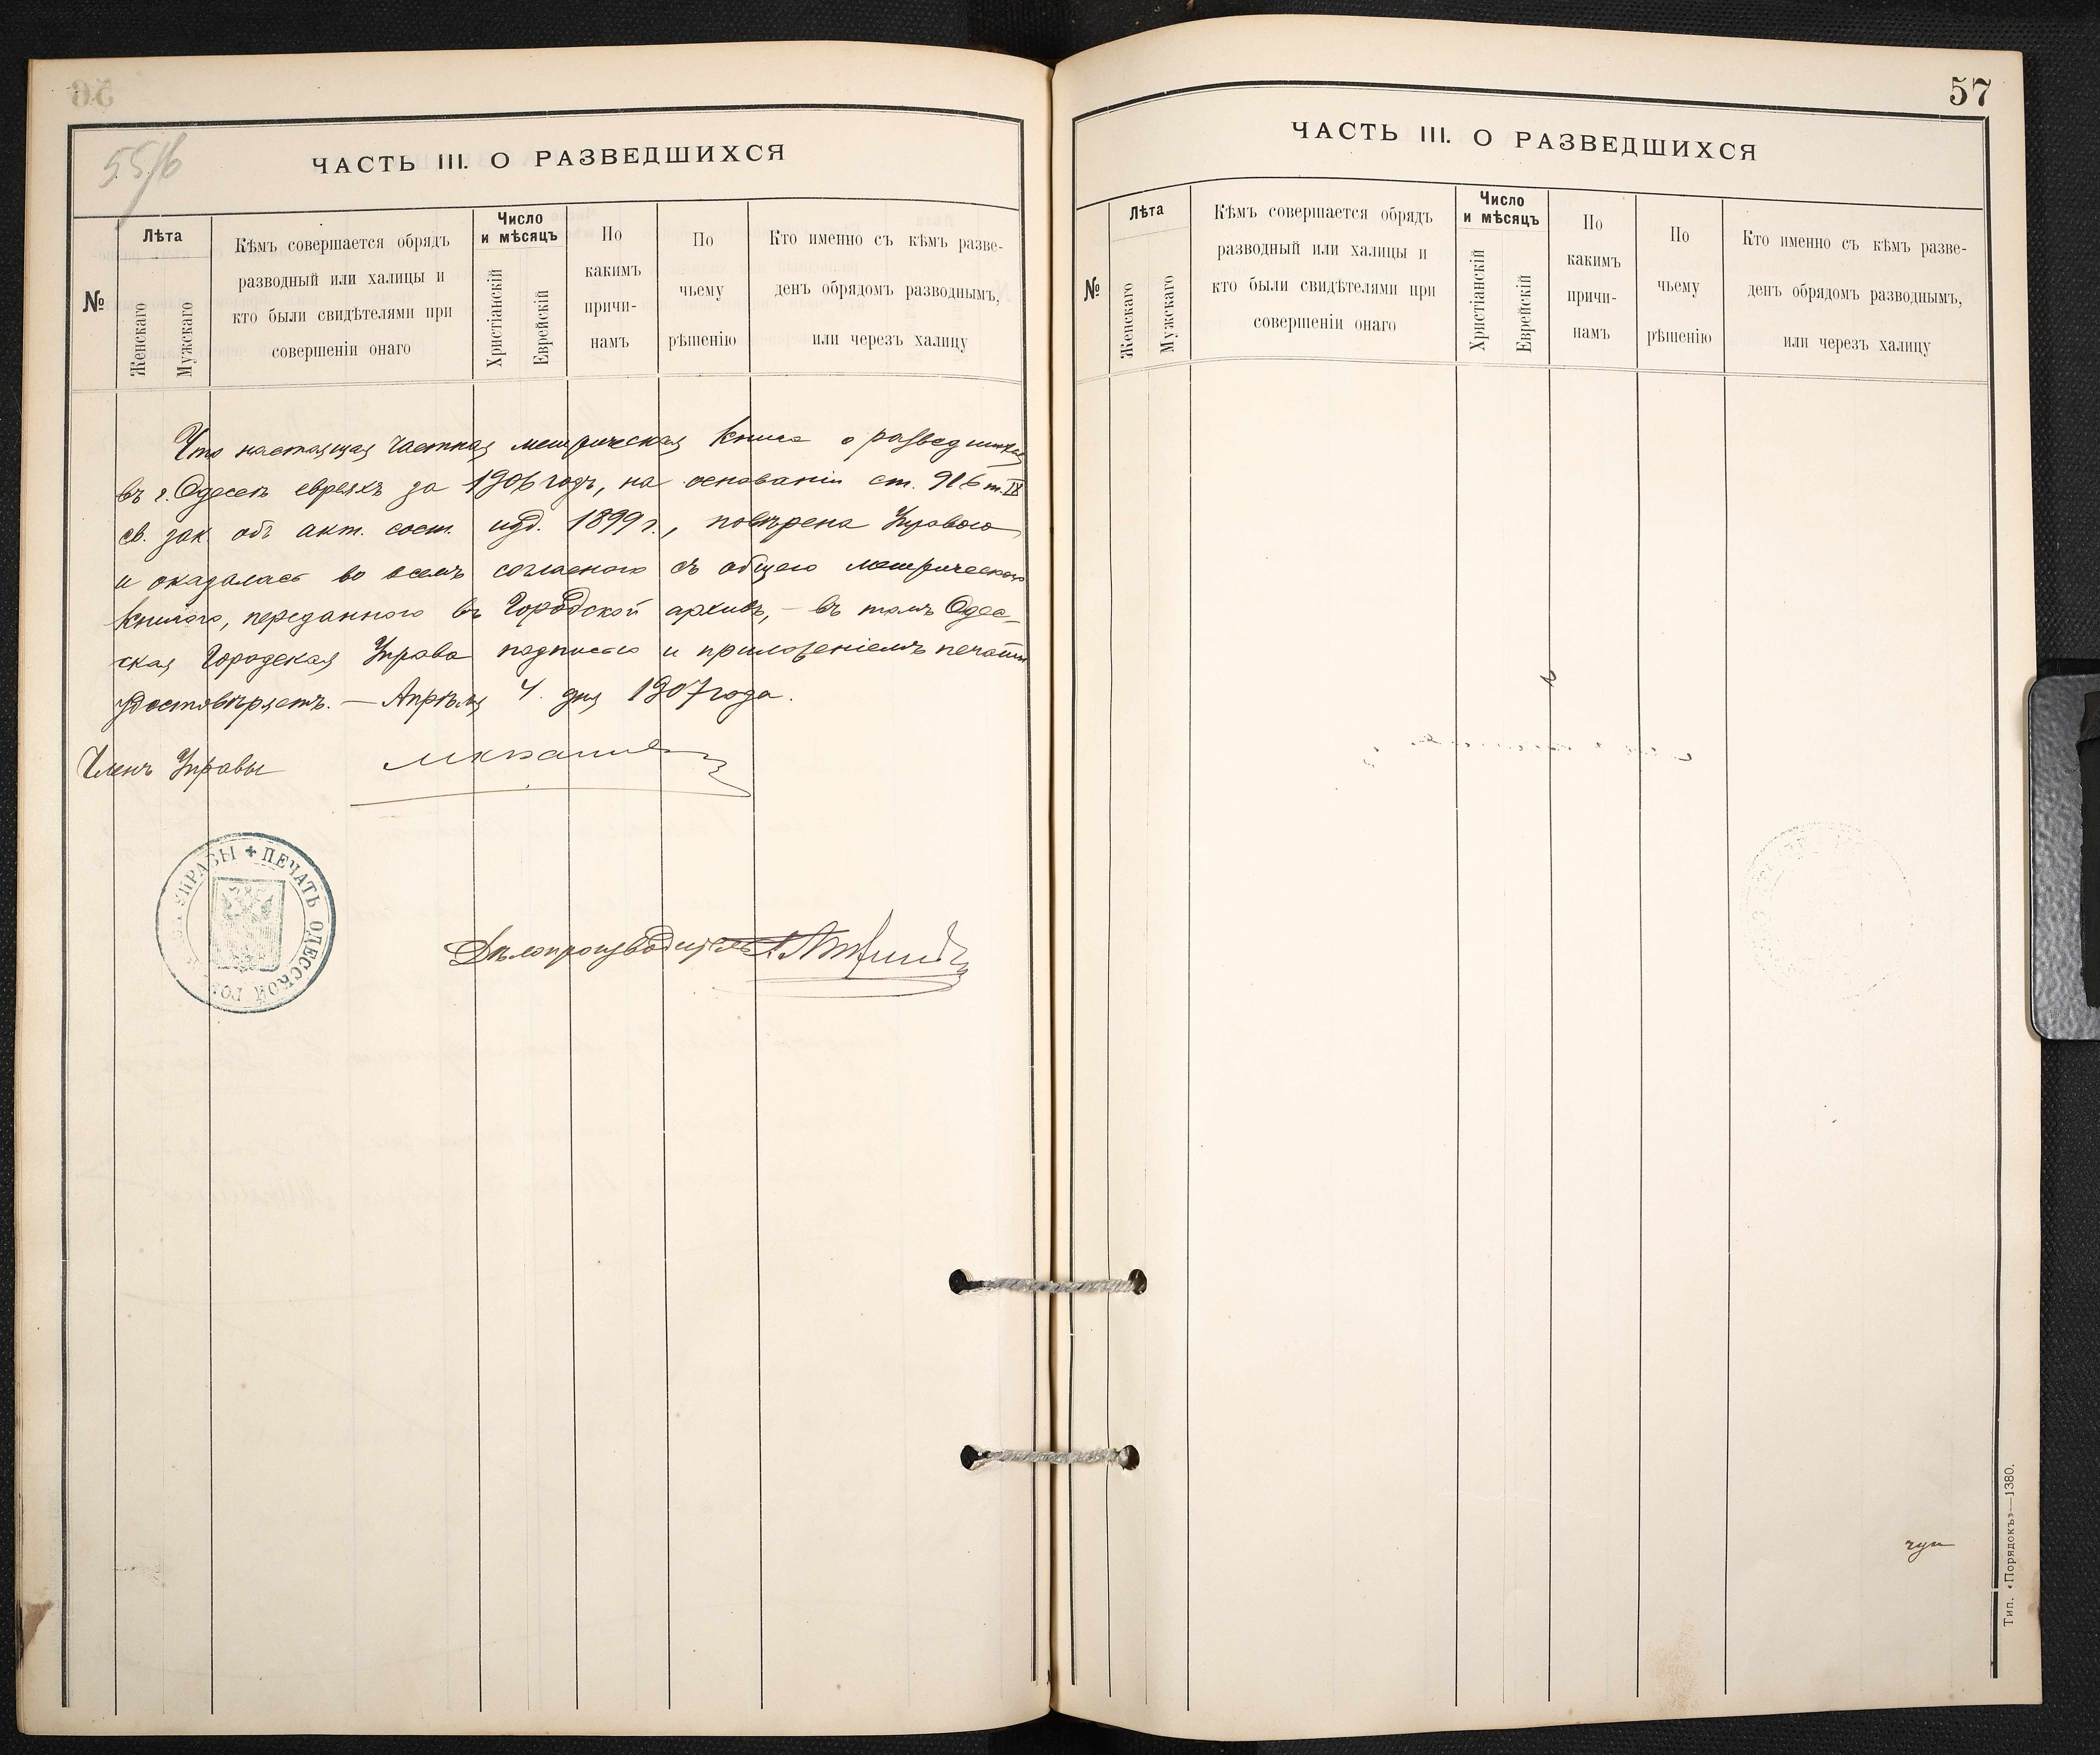 56
55/б
ЧАСТЬ III. О РАЗВЕДШИХСЯ
№
Лѣта
Женскаго
Мужскаго
Кѣмъ совершается обрядъ
разводный или халицы и
кто были свидѣтелями при
совершеніи онаго
Число
и мѣсяцъ
Христіанскій
Еврейскій
По
какимъ
причи-
намъ
По
чьему
рѣшенію
Кто именно съ кѣмъ разве-
денъ обрядомъ разводнымъ,
или черезъ халицу
Что настоящая частная метрическая книга о разведшихся
въ г. Одессѣ евреяхъ за 1906 годъ, на основаніи ст. 916 т. IX
св. зак. объ акт. сост. изд. 1899 г., повѣрена Управою
и оказалась во всемъ согласною съ общею метрическою
книгою, переданною въ Городской архивъ, – въ томъ Одес-
ская Городская Управа подписью и приложеніемъ печати
удостовѣряетъ. — Апрѣля 4 дня 1907 года.
Членъ Управы
ПЕЧАТЬ ОДЕССКОЙ ГОР УПРАВЫ
Дѣлопроизводитель
57
ЧАСТЬ III. О РАЗВЕДШИХСЯ
№
Лѣта
Женскаго
Мужскаго
Кѣмъ совершается обрядъ
разводный или халицы и
кто были свидѣтелями при
совершеніи онаго
Число
и мѣсяцъ
Христіанскій
Еврейскій
По
какимъ
причи-
намъ
По
чьему
рѣшенію
Кто именно съ кѣмъ разве-
денъ обрядомъ разводнымъ,
или черезъ халицу
Тип. «Порядокъ»—1380.